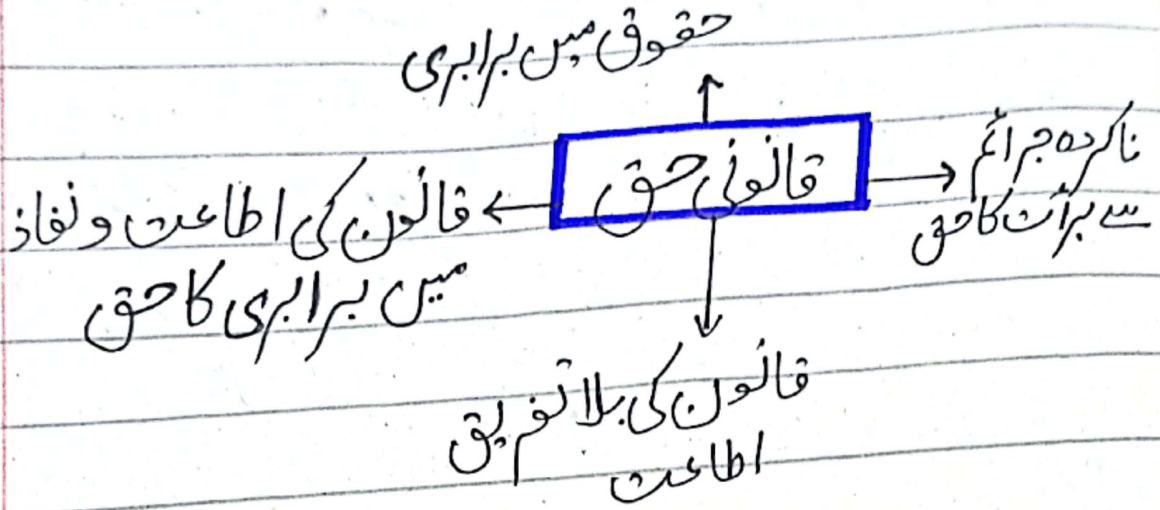 حقوق میں برابری
قانونی حق
ناکردہ جرائم
سے برأت کا حق
قانون کی اطاعت و نفاذ
میں برابری کا حق
قانون کی بلا تفریق
اطاعت